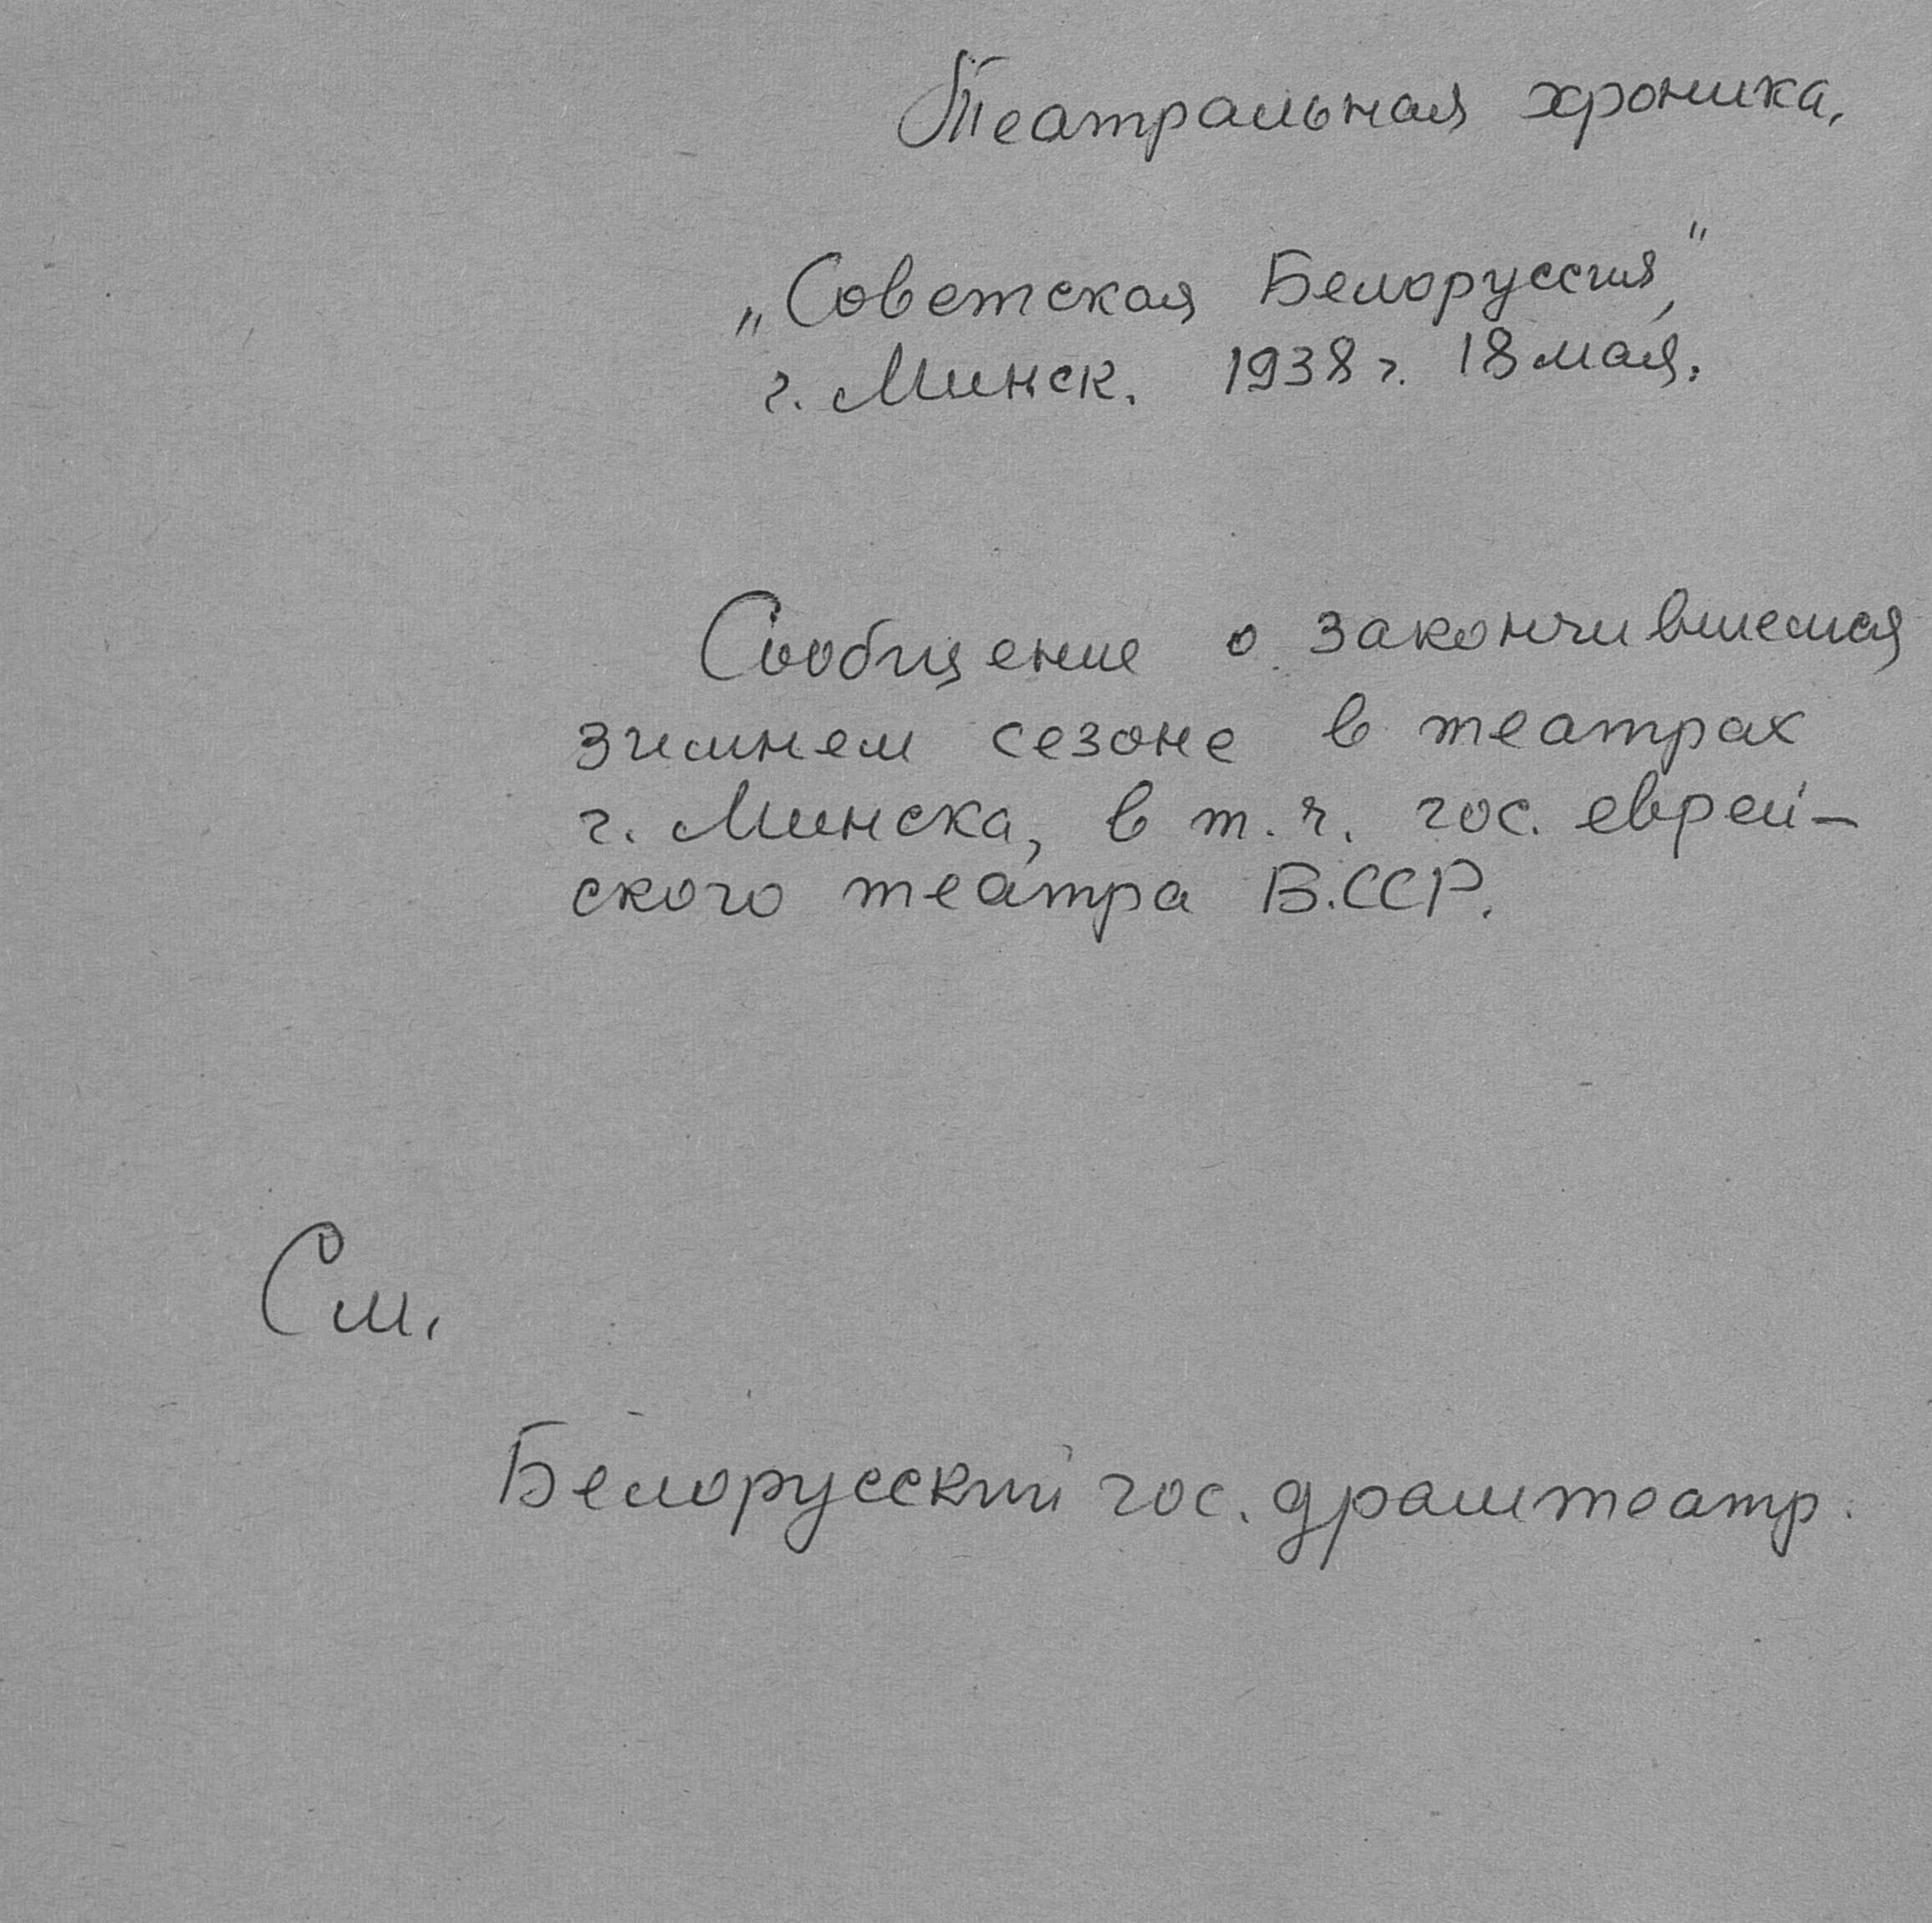 Театральная хроника.
„Советская Белоруссия",
г. Минск. 1938 г. 18 мая.
Сообщение о закончившемся
зимнем сезоне в театрах
г. Минска, в т. ч. гос. еврей-
ского театра В.ССР.
См.
Белорусский гос. драмтеатр.